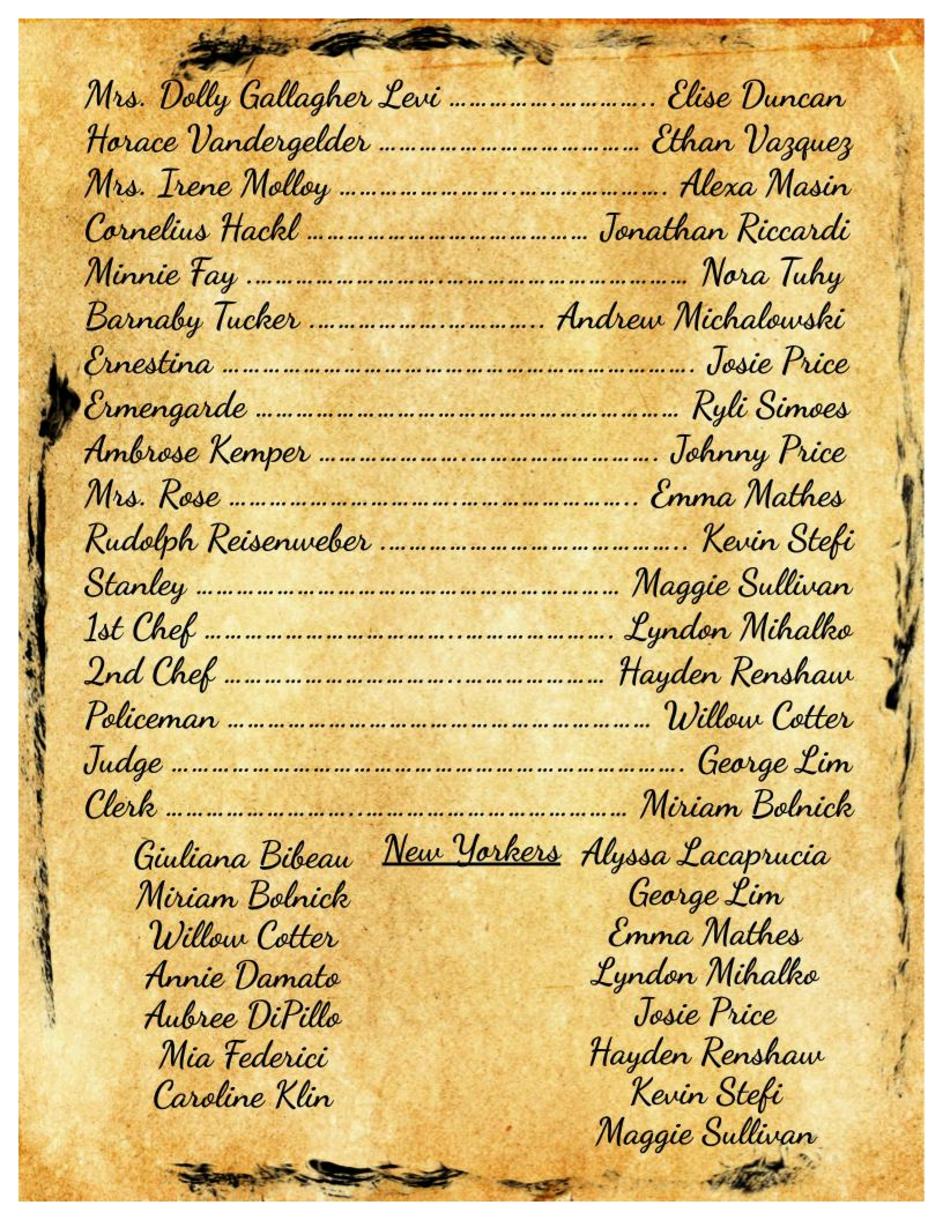 Mrs. Dolly Gallagher Levi ……………….………….. Elise Duncan
Horace Vandergelder ………………………………… Ethan Vazquez
Mrs. Irene Molloy ……………………..…………………. Alexa Masin
Cornelius Hackl …………………………………… Jonathan Riccardi
Minnie Fay .……………………….……………………………… Nora Tuhy
Barnaby Tucker .……………….………….. Andrew Michalowski
Ernestina ……………………………………………………………. Josie Price
Ermengarde ……………………………………………………… Ryli Simoes
Ambrose Kemper ………………….………………………. Johnny Price
Mrs. Rose …………………………….…………………….. Emma Mathes
Rudolph Reisenweber .…………………………………….. Kevin Stefi
Stanley ……………………………………………………… Maggie Sullivan
1st Chef ………………………………..…………………. Lyndon Mihalko
2nd Chef ……………………………..………………… Hayden Renshaw
Policeman ……………………………………………………… Willow Cotter
Judge …………………………………………………………………. George Lim
Clerk ………………………..………………………………… Miriam Bolnick
Giuliana Bibeau New Yorkers Alyssa Lacaprucia
Miriam Bolnick George Lim
Willow Cotter Emma Mathes
Annie Damato Lyndon Mihalko
Aubree DiPillo Josie Price
Mia Federici Hayden Renshaw
Caroline Klin Kevin Stefi
Maggie Sullivan